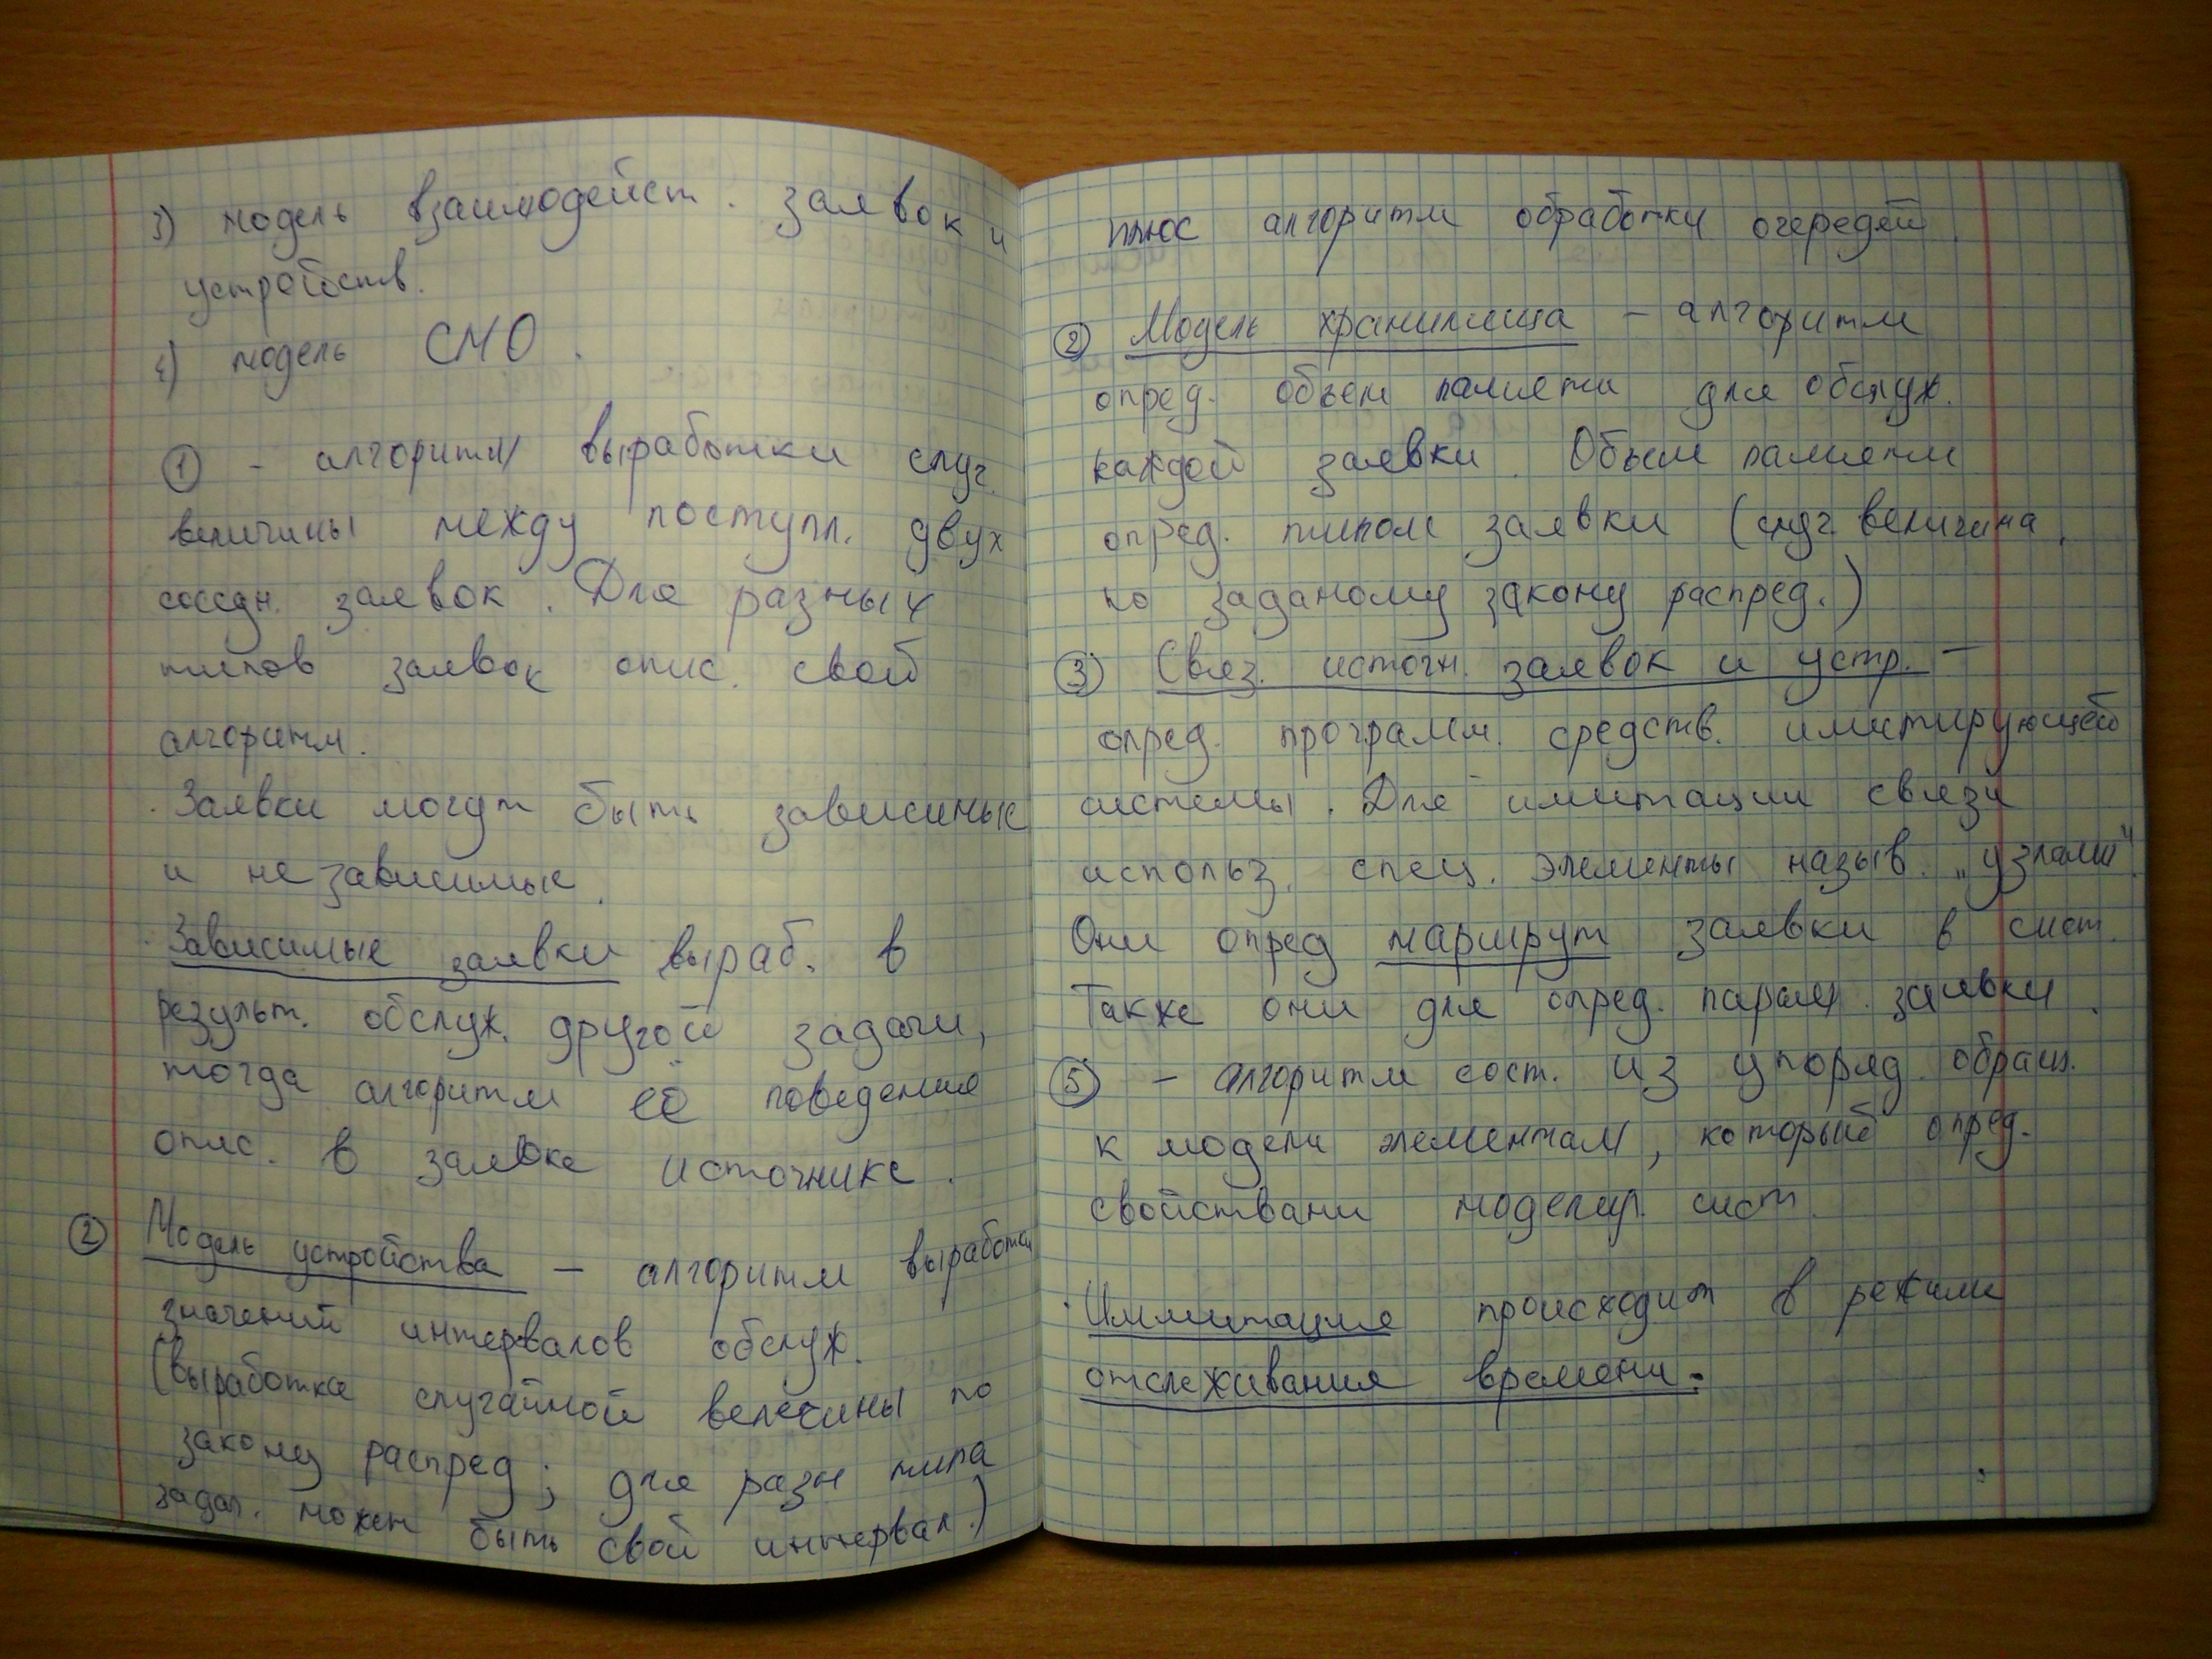 3) модель взаимодейст. заявок и
устройств.
4) модель СМО.
① - алгоритм выработки случ.
величины между поступл. двух
соседн. заявок. Для разных
типов заявок опис. свой
алгоритм.
Заявки могут быть зависимые
и независимые.
Зависимые заявки выраб. в
результ. обслуж. другой задачи,
тогда алгоритм её поведения
опис. в заявке источнике.
② Модель устройства – алгоритм выработки
значений интервалов обслуж.
(выработка случайной величины по
закону распред; для разн типа
задач. может быть свой интервал.)
плюс алгоритм обработки очередей.
② Модель хранилища – алгоритм
опред. объем памяти для обслуж.
каждой заявки. Объем памяти
опред. типом заявки (случ. величина
по заданому закону распред.)
③ Связ. источн. заявок и устр. –
опред. программ. средств. имитирующей
системы. Для имитации связи
использ. спец. элементы назыв. „узлами".
Они опред маршрут заявки в сист.
Также они для опред. парам. заявки.
⑤ – алгоритм сост. из упоряд. обращ.
к модели элементам, который опред.
свойствами моделир. сист.
Иммитация происходит в режиме
отслеживания времени.